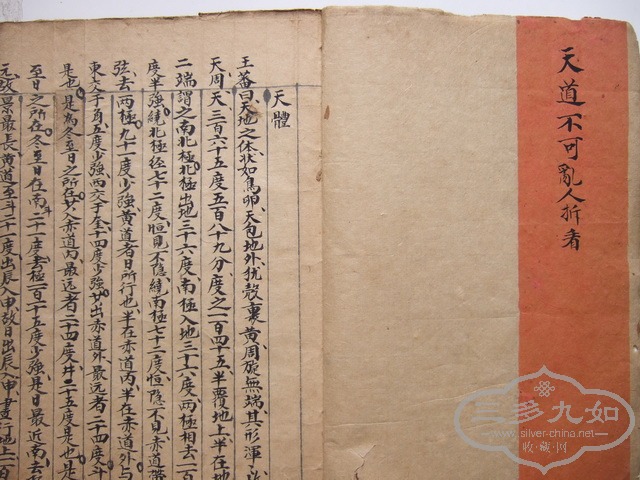 天道不可亂人折者
天體
王蕃曰天地之体状如鳥卵天包地外犹殼裏黄周旋無端其形渾
天周天三百六十五度五百八十九分度之一百四十五半覆地上半在地
二端謂之南北極北極出地三十六度南極入地三十六度两極相去一百
度半強繞北極徑七十二度恒見不隐繞南極七十二度恒隐不見赤道帶
弦去两極九十一度少強黄道者日所行也半在赤道内半在赤道外与
東交于角五度少強西交于奎十四度少強其出赤道外最远者二十四度斗
是也是為冬至日之所在其入赤道内最远者二十四度井二十五度是也是
至日之所在冬至日在南斗二十一度去極一百一十五度少強是日最近南去
故景最長黄道至斗二十一度出辰入申故日出辰入申晝行地上一百
三多九如
www.silver-china.net
收藏网